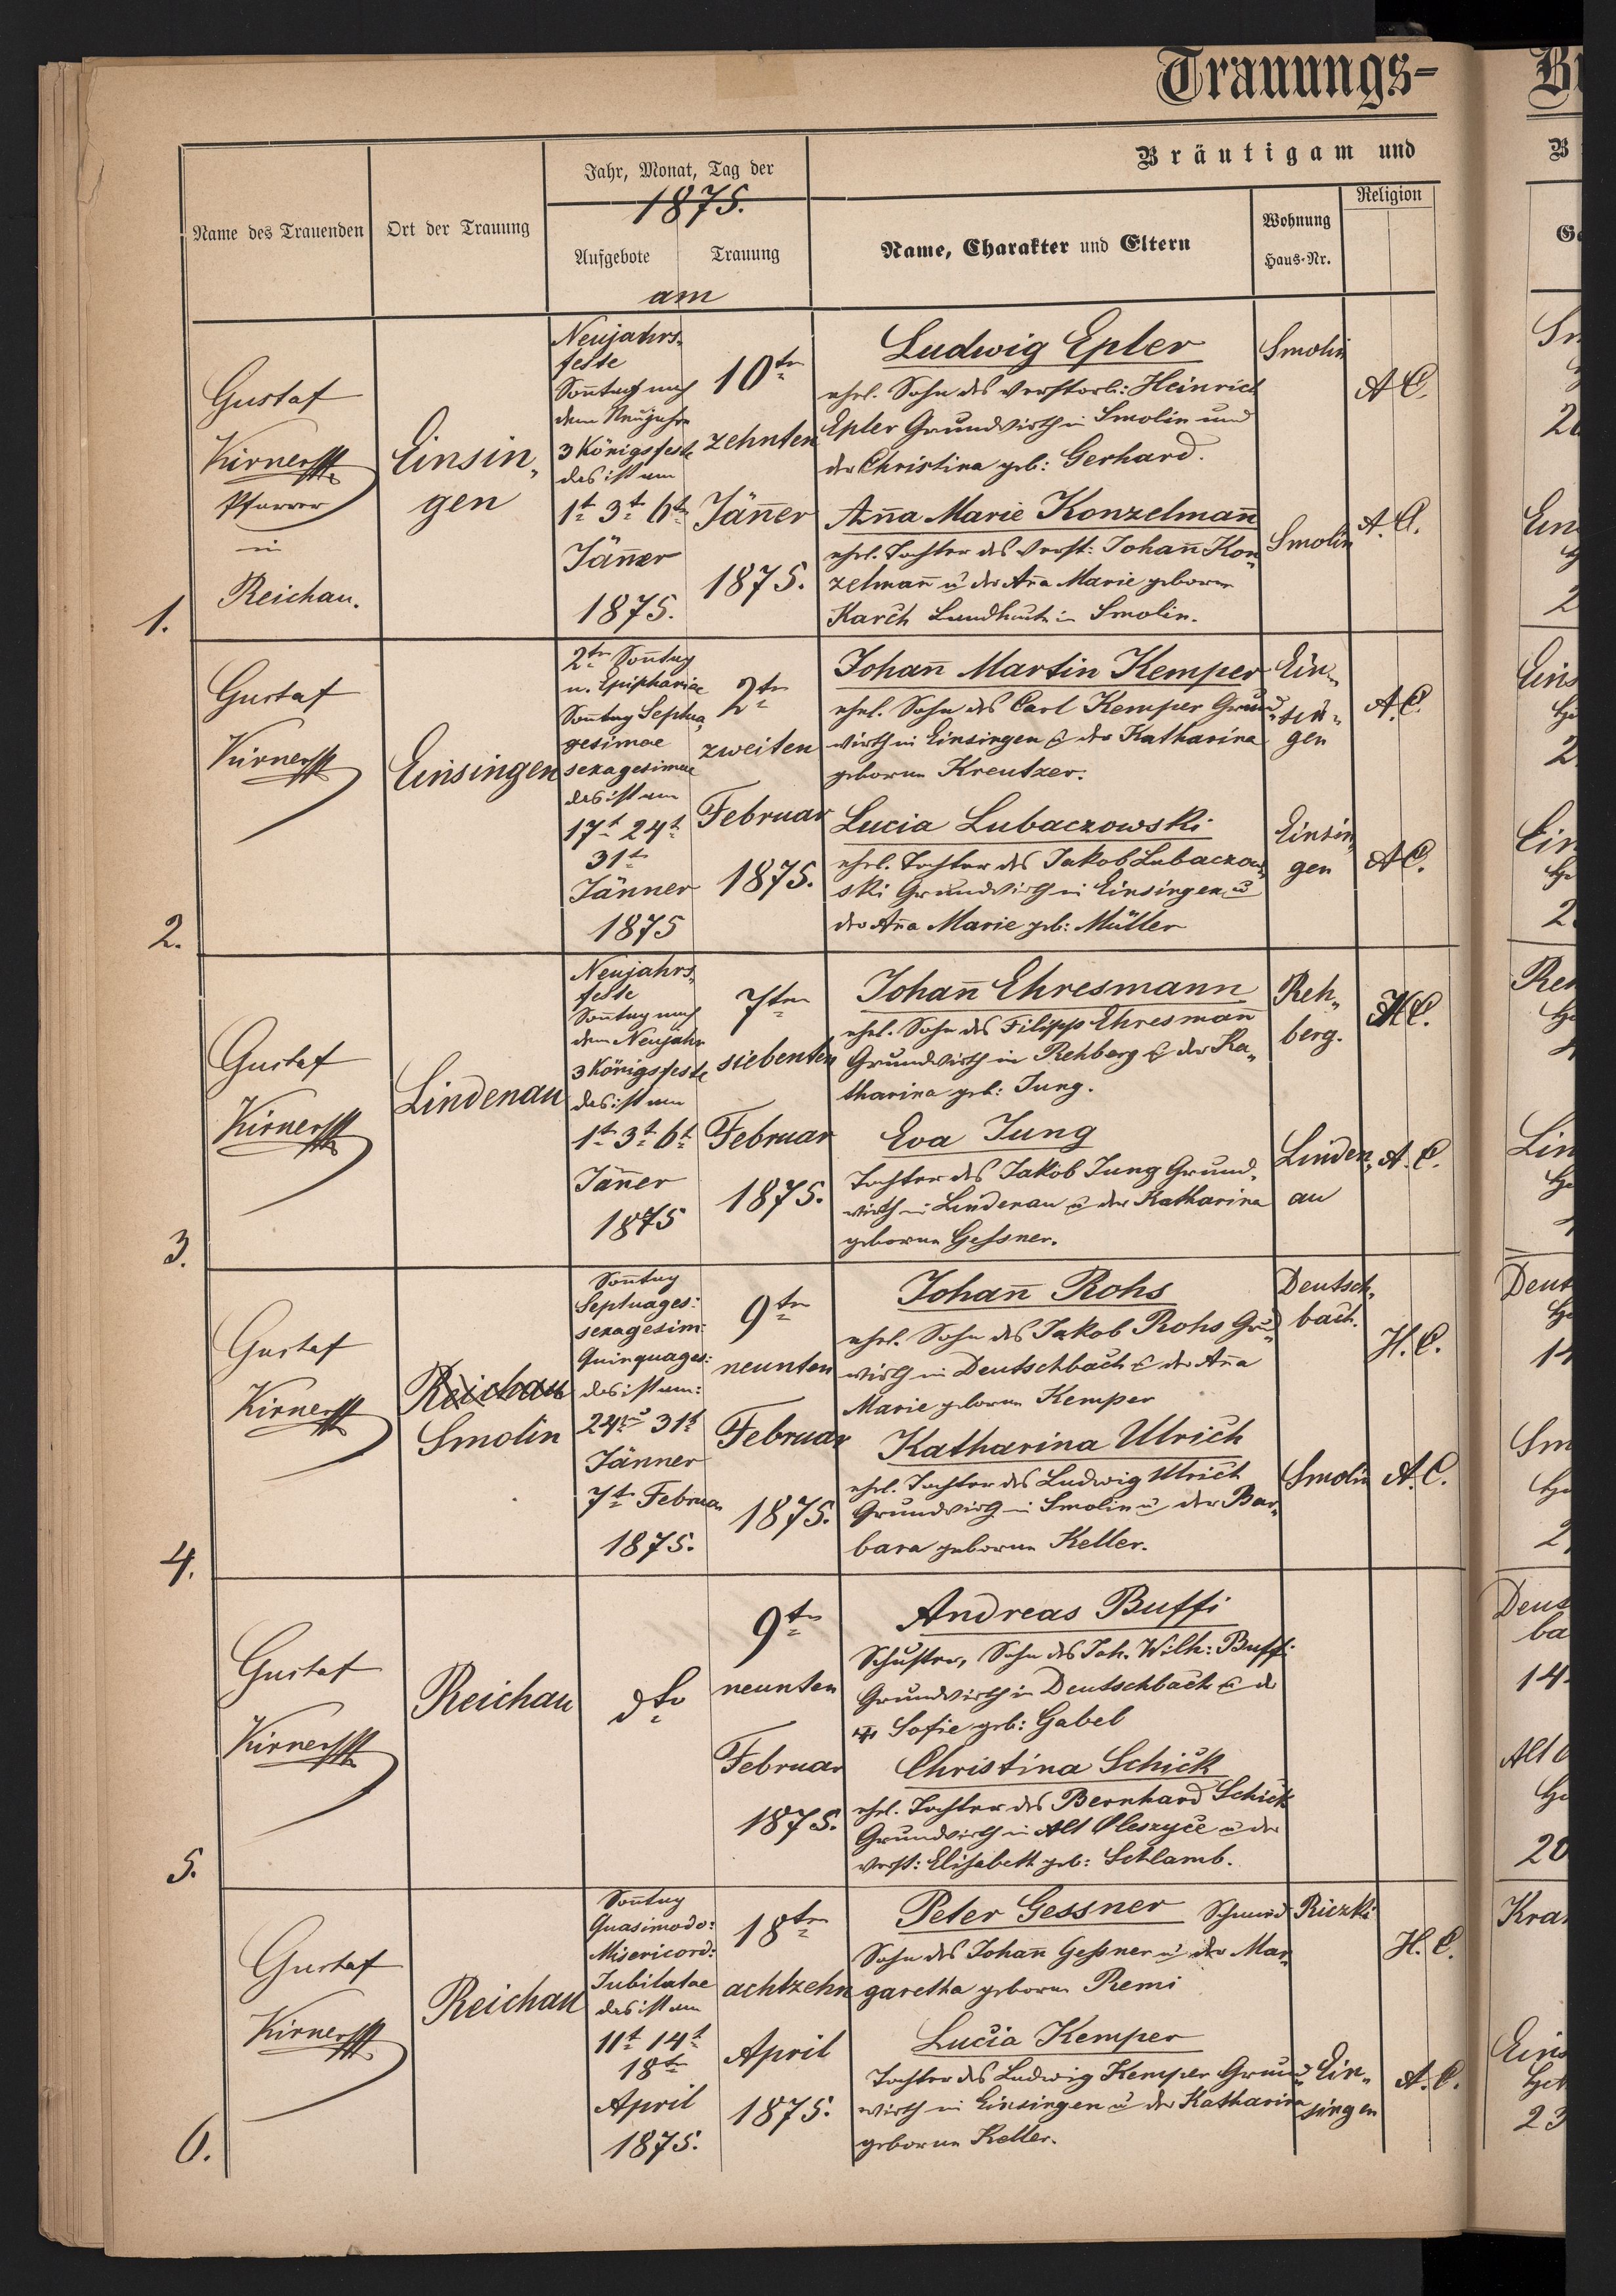 Trauungs-
Bräutigam und
Jahr, Monat, Tag der
1875.
Name des Trauenden
Ort der Trauung
Aufgebote
Trauung
am
Name, Charakter und Eltern
Wohnung
Haus-Nr.
Religion
1.
Gustaf
Kirner
Pfarrer
in
Reichau.
Einsin„
gen
Neujahrs„
feste
Soñtag nach
dem Neujahr
3 Königsfeste
das ist am
1t 3t 6t
Jäñer
1875.
10ten
zehnten
Jäñer
1875.
Ludwig Epler
ehel. Sohn des verstorb: Heinrich
Epler Grundwirth in Smolin und
der Christina geb: Gerhard.
Smolin
A. C.
Añna Marie Konzelmañn
ehel. Tochter des verst: Johañ Kon„
zelmañ u der Aña Marie geborne
Karch in Smolin.
Smolin
A. C.
2.
Gustaf
Kirner
Einsingen
2ten Soñtag
n. Epiphaniae
Soñtag Septua„
gesimae
sexagesimae
das ist am
17t 24t
31t
Jänner
1875
2ten
zweiten
Februar
1875.
Johañ Martin Kemper
ehel. Sohn des Carl Kemper Grund„
wirth in Einsingen & der Katharina
geborne Kreutzer.
Ein„
sin„
gen
A. C.
Lucia Lubaczowski
ehel. Tochter des Jakob Lubaczow„
ski Grundwirth in Einsingen u
der Aña Marie geb: Müller
Einsin„
gen
A. C.
3.
Gustaf
Kirner
Lindenau
Neujahrs„
feste
Soñtag nach
dem Neujahr
3 Königsfeste
das ist am
1t 3t 6t
Jäñer
1875
7ten
siebenten
Februar
1875.
Johañ Ehresmann
ehel. Sohn des Filipp Ehresmañ
Grundwirth in Rehberg & der Ka„
tharina geb: Jung.
Reh„
berg.
H. C.
Eva Jung
Tochter des Jakob Jung Grund„
wirth in Lindenau u der Katharina
geborne Geßner.
Linden„
au
A. C.
4.
Gustaf
Kirner
Reichau
Smolin
Soñtag
Septuages:
sexagesim:
Quinquages:
das ist am:
24t 31t
Jänner
7t Februar
1875.
9ten
neunten
Februar
1875.
Johañ Rohs
ehel. Sohn des Jakob Rohs Grund„
wirth in Deutschbach & der Aña
Marie geborne Kemper
Deutsch„
bach.
H. C.
Katharina Ulrich
ehel. Tochter des Ludwig Ulrich
Grundwirth in Smolin u der Bar„
bara geborne Keller.
Smolin
A. C.
5.
Gustaf
Kirner
Reichau
dto
9ten
neunten
Februar
1875.
Andreas Buffi
Schuster, Sohn des Joh. Wilh: Buffi
Grundwirth in Deutschbach & der
Sofie geb: Gabel
Christina Schick
ehel. Tochter des Bernhard Schick
Grundwirth in Alt Oleszyce u der
verst: Elisabeth geb: Schlamb.
6.
Gustaf
Kirner
Reichau
Soñtag
Quasimodo:
Misericord:
Jubilatae
das ist am
11t 14t
18ten
April
1875.
18ten
achtzehn
April
1875.
Peter Gessner Schmied
Sohn des Johañ Geßner u der Mar„
garetha geborne Remi
Riczki
H. C.
Lucia Kemper
Tochter des Ludwig Kemper Grund„
wirth in Einsingen u der Katharina
geborne Keller.
Ein„
singen
A. C.